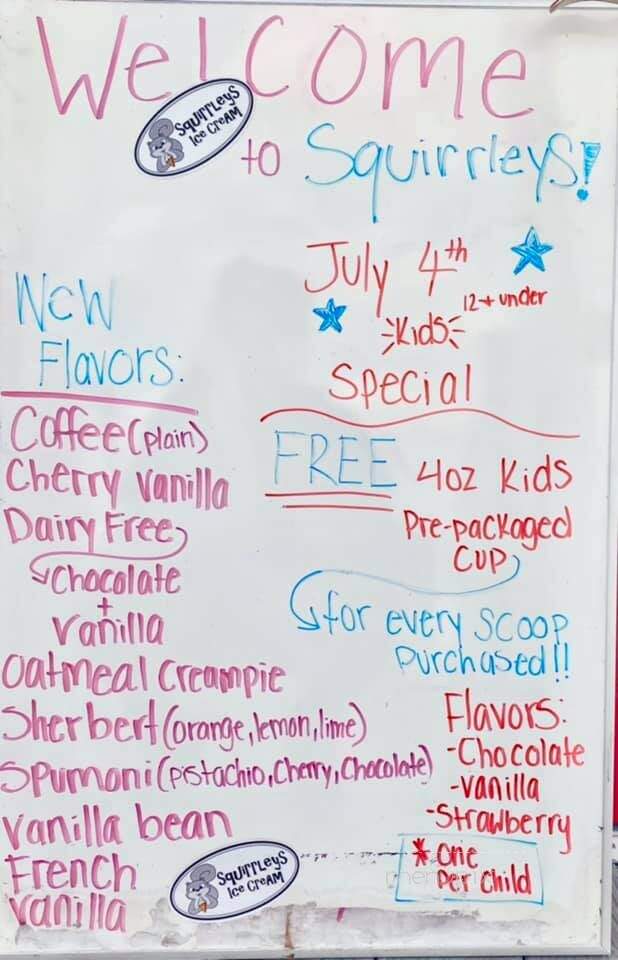 Welcome
Squirrleys
Ice Cream
to Squirrleys!
New
Flavors:
Coffee (plain)
Cherry vanilla
Dairy Free
Chocolate
+
vanilla
Oatmeal Creampie
Sherbert (orange, lemon, lime)
Spumoni (pistachio, Cherry, Chocolate)
vanilla bean
French
vanilla
July 4th
12 + under
Kids
Special
FREE 4oz Kids
Pre-packaged
Cup
for every scoop
purchased!!
Flavors:
-Chocolate
-vanilla
-Strawberry
* One
Per Child
Squirrleys
Ice Cream